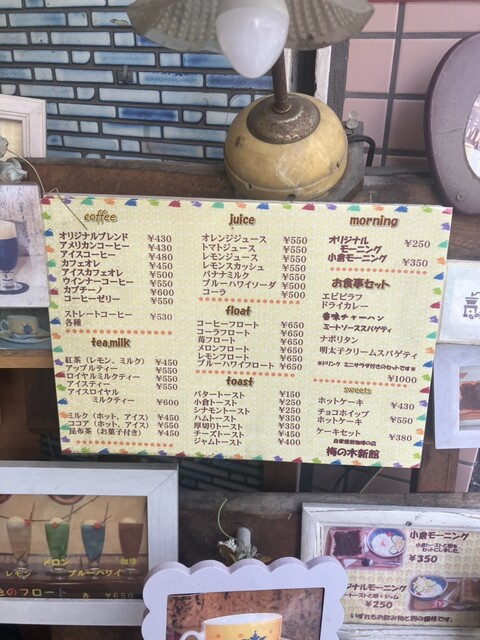 coffee
オリジナルブレンド ¥430
アメリカンコーヒー ¥430
アイスコーヒー ¥480
カフェオレ ¥450
アイスカフェオレ ¥500
ウインナーコーヒー ¥550
カプチーノ ¥600
コーヒーゼリー ¥550
ストレートコーヒー ¥530
各種
tea,milk
紅茶（レモン、ミルク） ¥450
アップルティー ¥550
ロイヤルミルクティー ¥550
アイスティー ¥550
アイスロイヤル
ミルクティー ¥600
ミルク（ホット、アイス） ¥450
ココア（ホット、アイス） ¥550
昆布茶（お菓子付き） ¥450
juice
オレンジジュース ¥550
トマトジュース ¥550
レモンジュース ¥550
レモンスカッシュ ¥550
バナナミルク ¥550
ブルーハワイソーダ ¥500
コーラ ¥500
float
コーヒーフロート ¥650
コーラフロート ¥650
苺フロート ¥650
メロンフロート ¥650
レモンフロート ¥650
ブルーハワイフロート ¥650
toast
バタートースト ¥150
小倉トースト ¥250
シナモントースト ¥250
ハムトースト ¥350
厚切りトースト ¥350
チーズトースト ¥450
ジャムトースト ¥400
morning
オリジナル
モーニング ¥250
小倉モーニング ¥350
お食事セット
エビピラフ
ドライカレー
香味チャーハン
ミートソーススパゲティ
ナポリタン
明太子クリームスパゲティ
※ドリンク ミニサラダ付きのセットです※
¥1000
sweets
ホットケーキ ¥430
チョコホイップ
ホットケーキ ¥550
ケーキセット ¥380
自家焙煎珈琲の店
梅の木新館
メロン
レモン
ブルーハワイ
のフロート 各 ¥650
小倉モーニング
¥350
モーニング
¥250
いずれもお飲み物と別の価格です。